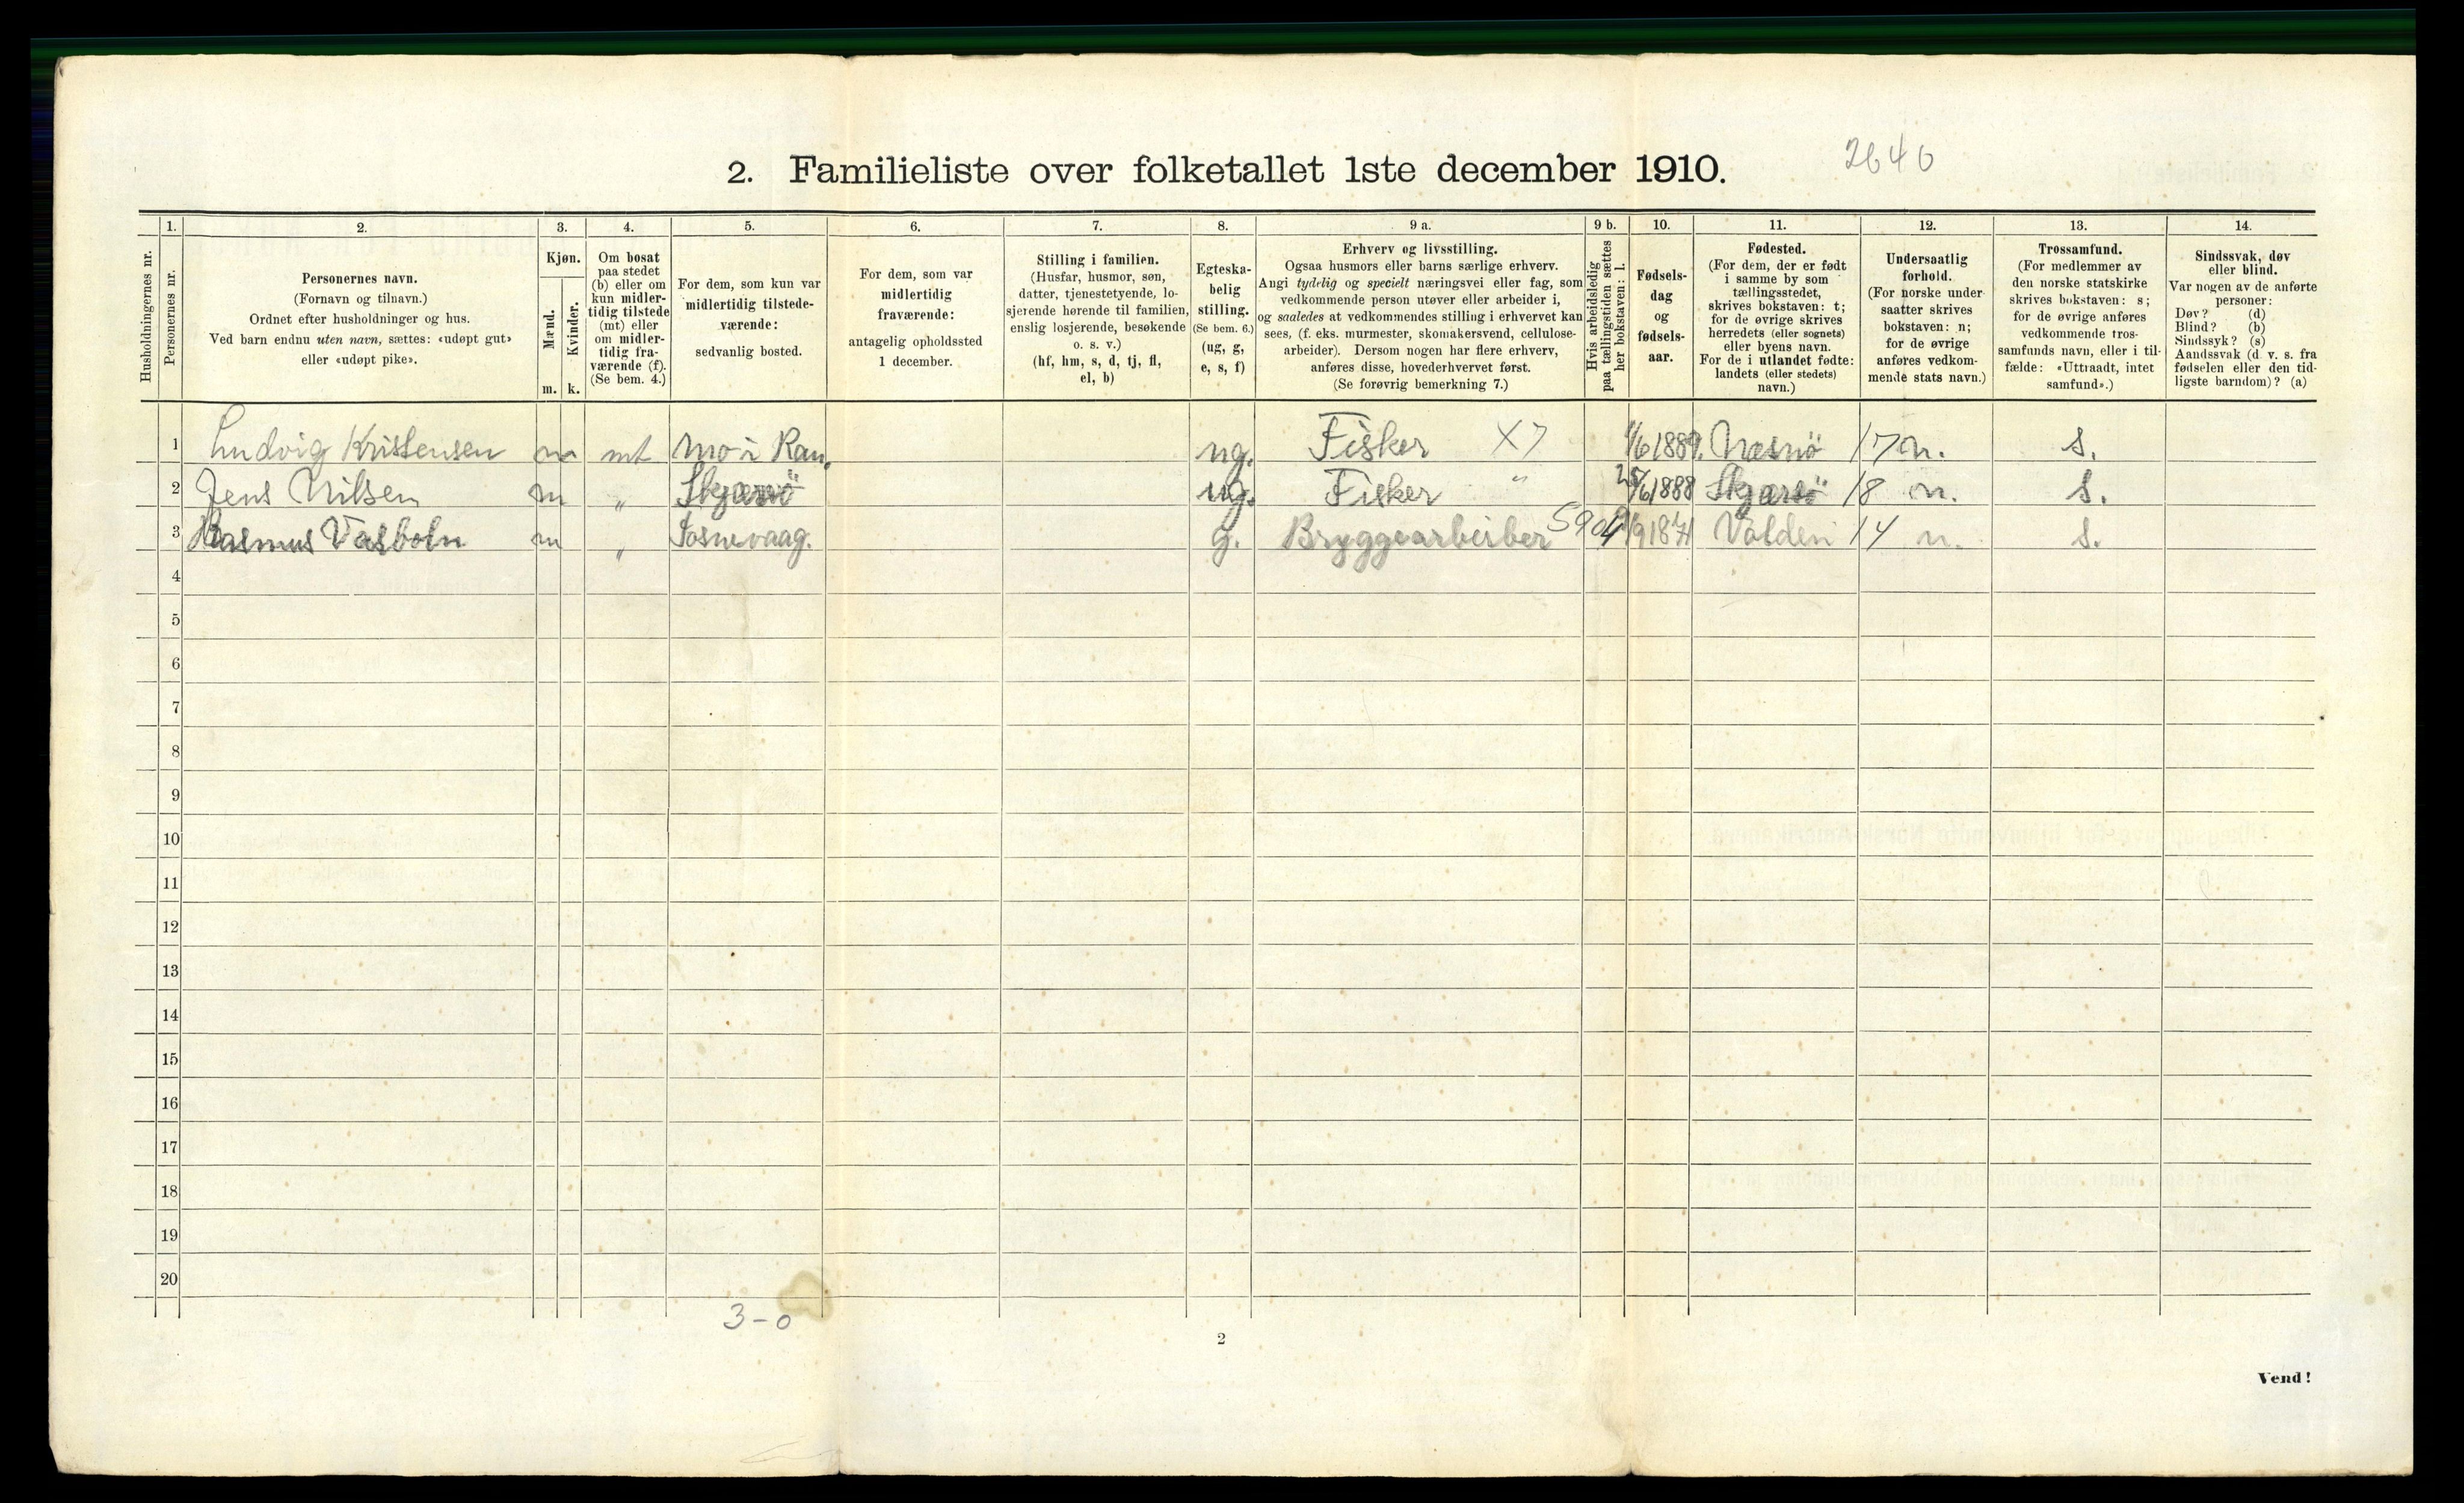 2. Familieliste over folketallet 1ste december 1910.
2640
Husholdningernes nr.
1.
Personernes nr.
2.
Personernes navn.
(Fornavn og tilnavn.)
Ordnet efter husholdninger og hus.
Ved barn endnu uten navn, sættes: «udøpt gut»
eller «udøpt pike».
3.
Kjøn.
Mænd.
Kvinder.
m. k.
4.
Om bosat
paa stedet
(b) eller om
kun midler-
tidig tilstede
(mt) eller
om midler-
tidig fra-
værende (f).
(Se bem. 4.)
5.
For dem, som kun var
midlertidig tilstede-
værende:
sedvanlig bosted.
6.
For dem, som var
midlertidig
fraværende:
antagelig opholdssted
1 december.
7.
Stilling i familien.
(Husfar, husmor, søn,
datter, tjenestetyende, lo-
sjerende hørende til familien,
enslig losjerende, besøkende
o. s. v.)
(hf, hm, s, d, tj, fl,
el, b)
8.
Egteska-
belig
stilling.
(Se bem. 6.)
(ug, g,
e, s, f)
9 a.
Erhverv og livsstilling.
Ogsaa husmors eller barns særlige erhverv.
Angi tydelig og specielt næringsvei eller fag, som
vedkommende person utøver eller arbeider i,
og saaledes at vedkommendes stilling i erhvervet kan
sees, (f. eks. murmester, skomakersvend, cellulose-
arbeider). Dersom nogen har flere erhverv,
anføres disse, hovederhvervet først.
(Se forøvrig bemerkning 7.)
9 b.
Hvis arbeidsledig
paa tællingstiden sættes
her bokstaven: l.
10.
Fødsels-
dag
og
fødsels-
aar.
11.
Fødested.
(For dem, der er født
i samme by som
tællingsstedet,
skrives bokstaven: t;
for de øvrige skrives
herredets (eller sognets)
eller byens navn.
For de i utlandet fødte:
landets (eller stedets)
navn.)
12.
Undersaatlig
forhold.
(For norske under
saatter skrives
bokstaven: n;
for de øvrige
anføres vedkom-
mende stats navn.)
13.
Trossamfund.
(For medlemmer av
den norske statskirke
skrives bokstaven: s;
for de øvrige anføres
vedkommende tros-
samfunds navn, eller i til-
fælde: «Uttraadt, intet
samfund».)
14.
Sindssvak, døv
eller blind.
Var nogen av de anførte
personer:
Døv? (d)
Blind? (b)
Sindssyk? (s)
Aandssvak (d. v. s. fra
fødselen eller den tid-
ligste barndom)? (a)
1 Ludvig Kristensen m mt Mo i Ran. ug. Fisker X7 1/6 1889. Næsnö 17 n. s.
2 Jens Nilsen m „ ug. Fisker " 25/6 1888 18 n. s.
3 Rasmus m „ Fosnevaag. g. Bryggearbeiber 5904 Volden 14 n. s.
4
5
6
7
8
9
10
11
12
13
14
15
16
17
18
19
20
3-0
2
Vend!